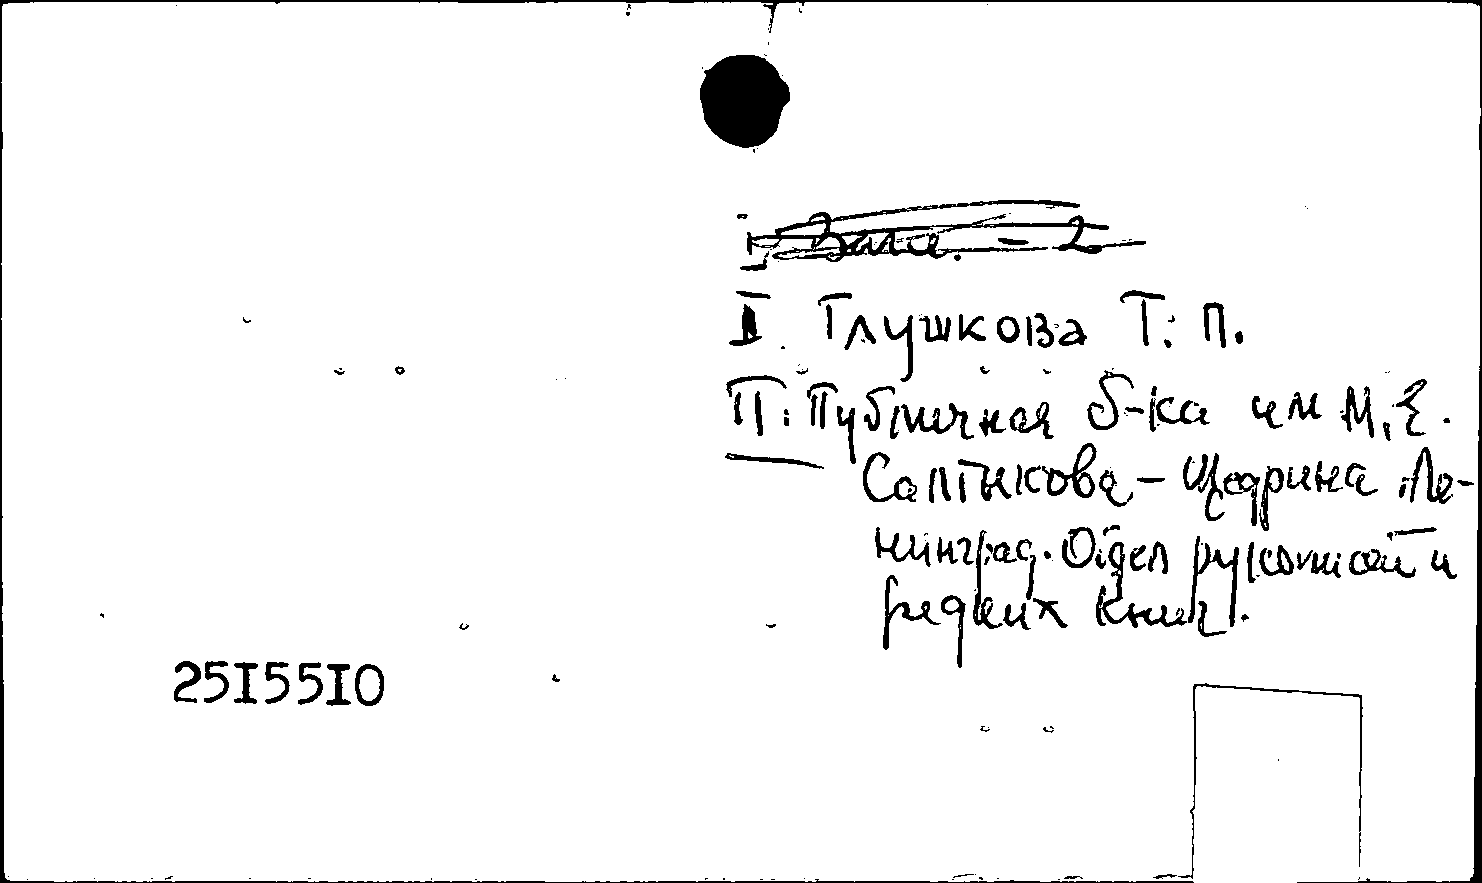 I. Глушкова Т. П.
II. Публичная б-ка им М. Е.
Салтыкова - Щедрина. Ле-
нинград. Отдел рукописей и
редких книг.
25I55I0